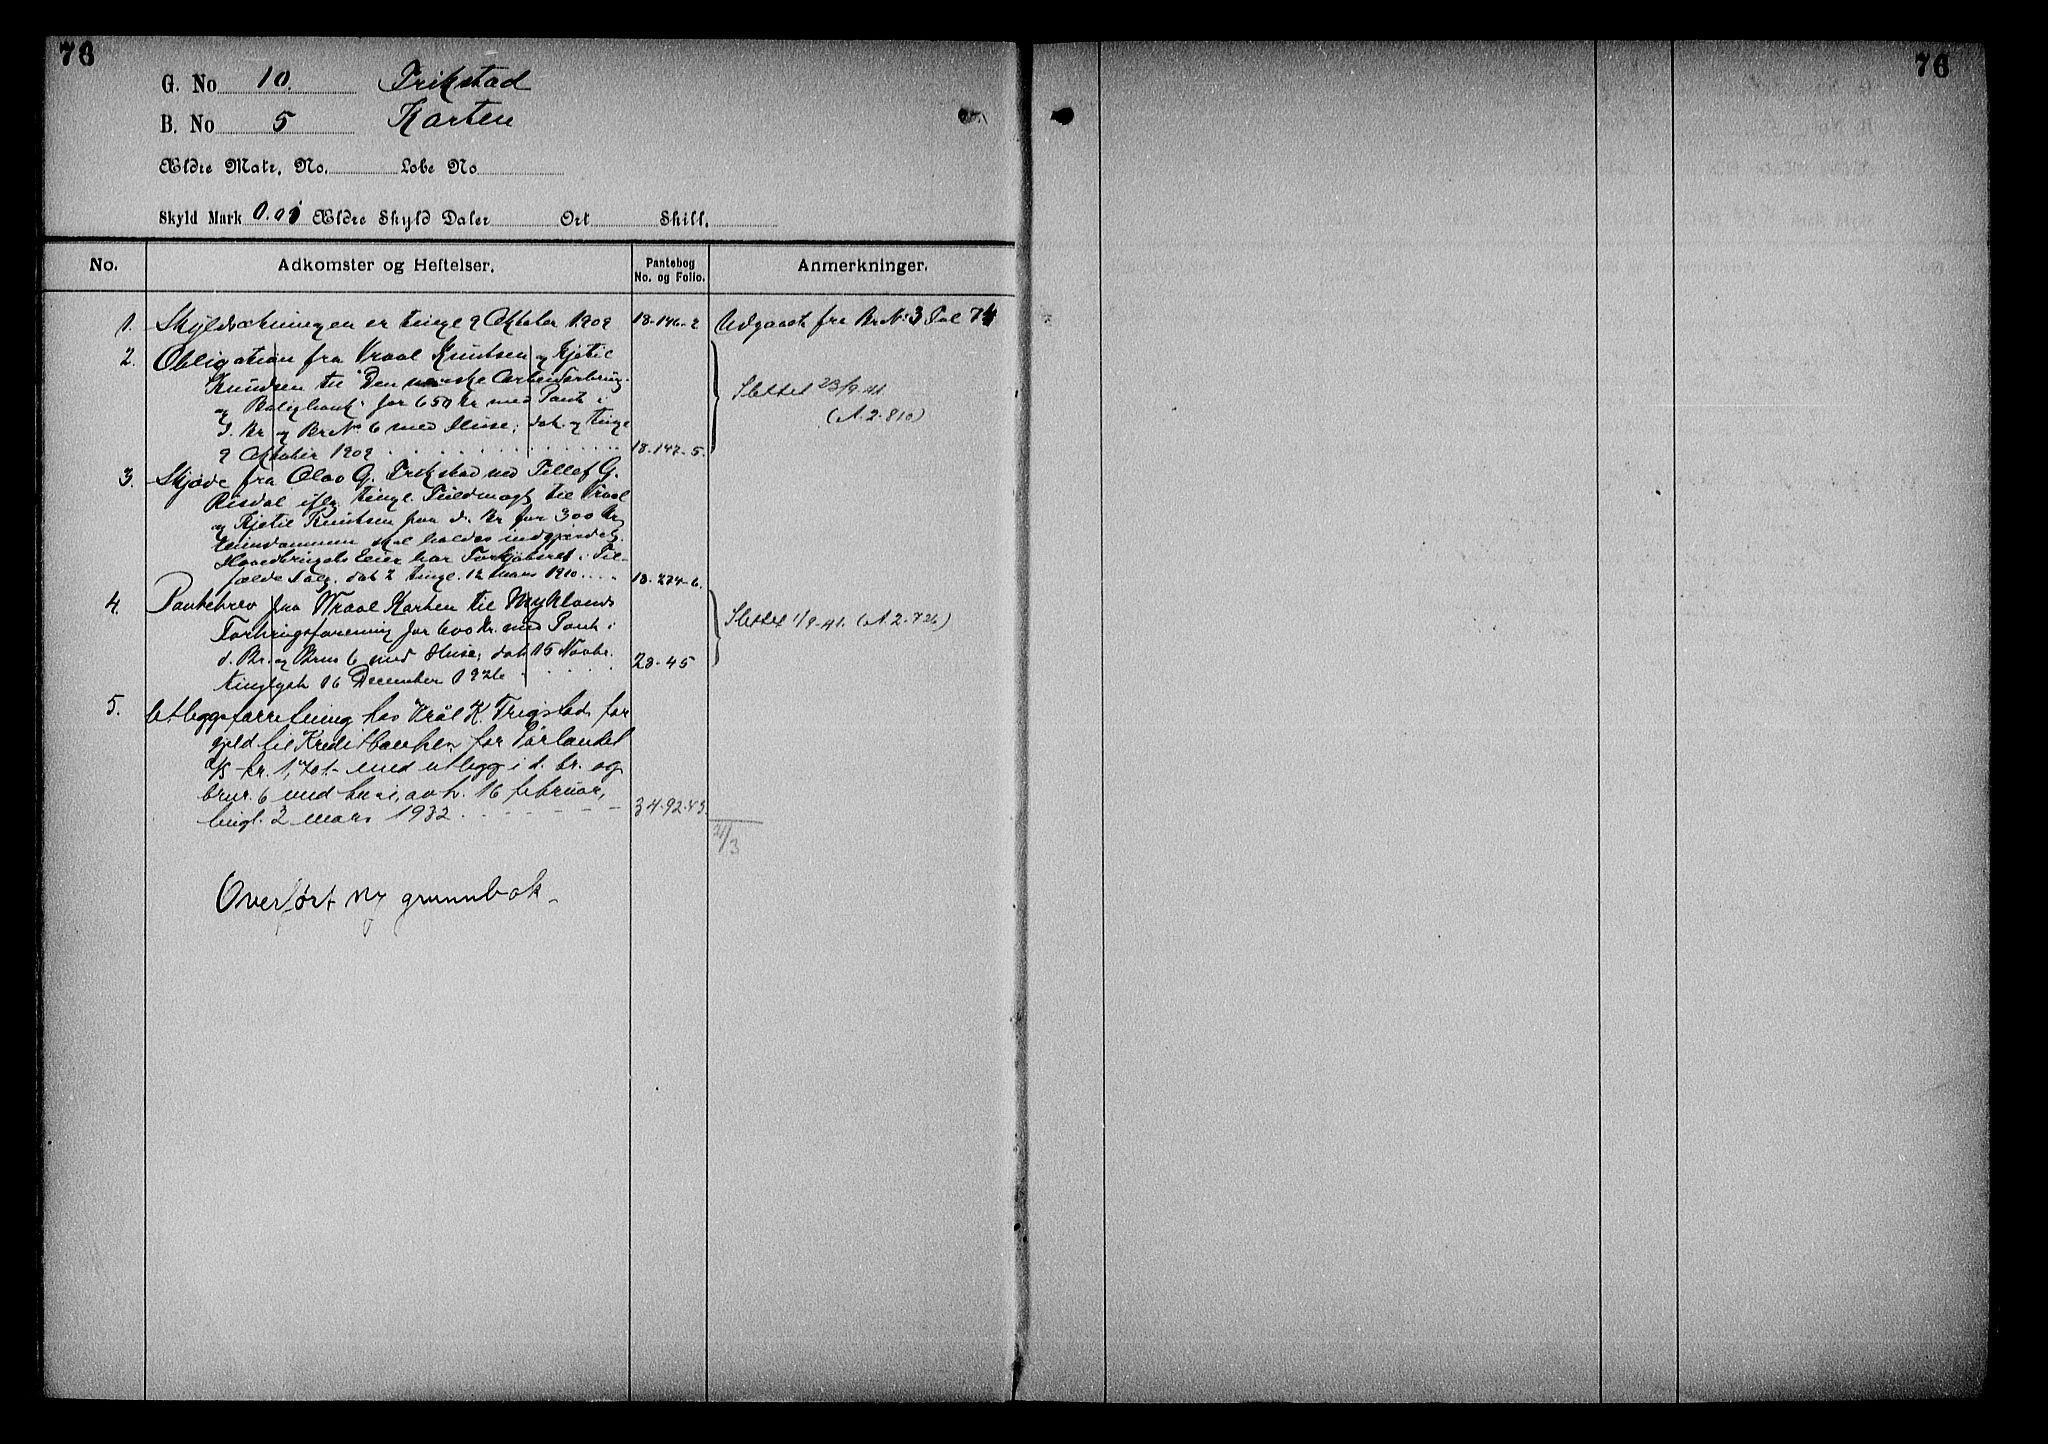 76
76
G. No 10. Frikstad
B. No 5 Karten
Ældre Matr. No. Løbe No
Skyld Mark 0.01 Ældre Skyld Daler Ort Skill.
No. Adkomster og Heftelser. Pantebog No. og Folio. Anmerkninger.
1. Skyldsætningen er tingl 9 Oktober 1909 18-146-2 Udgaaet fra Br No 3 Fol 74
2. Obligation fra Vraal Knutsen og Kjetil
Knudsen til "Den norske Arbeiderbrug-
og Boligbank" for 650 kr med Pant i
d. Br og Br No 6 med Huse; dat. og tingl
9 Oktober 1909 18-147-5.
Slettet 23/9 41
(A.2.810)
3. Skjøde fra Olav G. Frikstad ved Tellef G.
Risdal iflg tingl. Fuldmagt til Vraal
og Kjetil Knutsen paa d. Br for 300 Kr,
Eiendommen skal holdes indgjerdet.
Hovedbrugets Eier har Forkjøbsret i Til-
fælde Salg. dat 2 tingl. 12 Mars 1910 18-274-6.
4. Pantebrev fra Vraal Karten til Myklands
Forbrugsforening for 600 Kr. med Pant i
d. Br. og Brno 6 med Huse; dat 15 Novbr.
tinglyst 16 December 1926 28-45
Slettet 1/9-41. (A.2.726)
5. Utleggsforretning hos Vrål K. Frigstad for
gjeld til Kreditbanken for Sørlandet
A/S - kr. 1,701.- med utlegg i d. br. og
brnr. 6 med hus i, avh. 16 februar,
tingl. 2 mars 1932 34-92-43.
21/3
Overført ny grunnbok